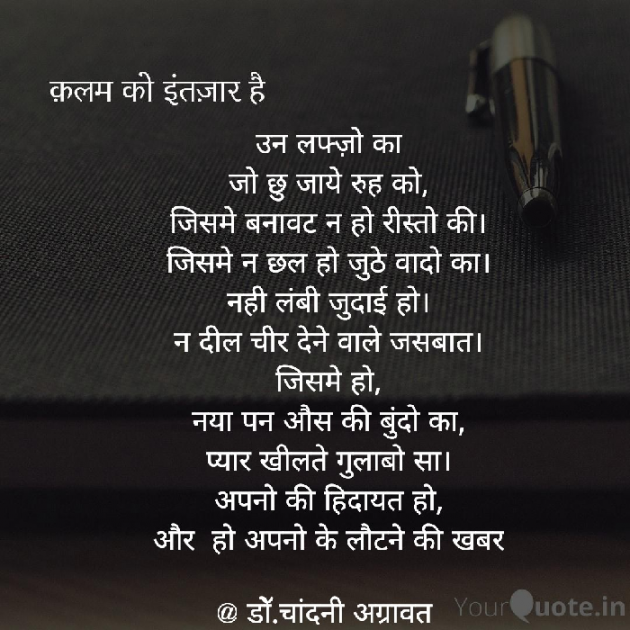 क़लम को इंतज़ार है
उन लफ्ज़ो का
जो छु जाये रुह को,
जिसमे बनावट न हो रीस्तो की।
जिसमे न छल हो जुठे वादो का।
नही लंबी जुदाई हो।
न दील चीर देने वाले जसबात।
जिसमे हो,
नया पन औस की बुंदो का,
प्यार खीलते गुलाबो सा।
अपनो की हिदायत हो,
और हो अपनो के लौटने की खबर
@ डॉ.चांदनी अग्रावत
YourQuote.in